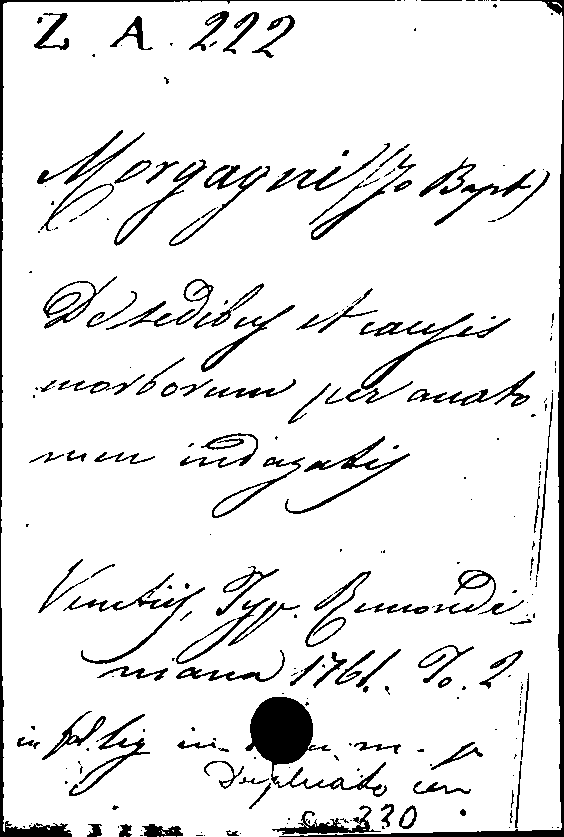 Z. A. 222
Morgagni (Jo Bapt)
De sedibus et causis
morborum per anato
men indagatis
Venetiis, Typ. Remondi-
niana 1761. To. 2
in fol. lig in
Duplicato
330